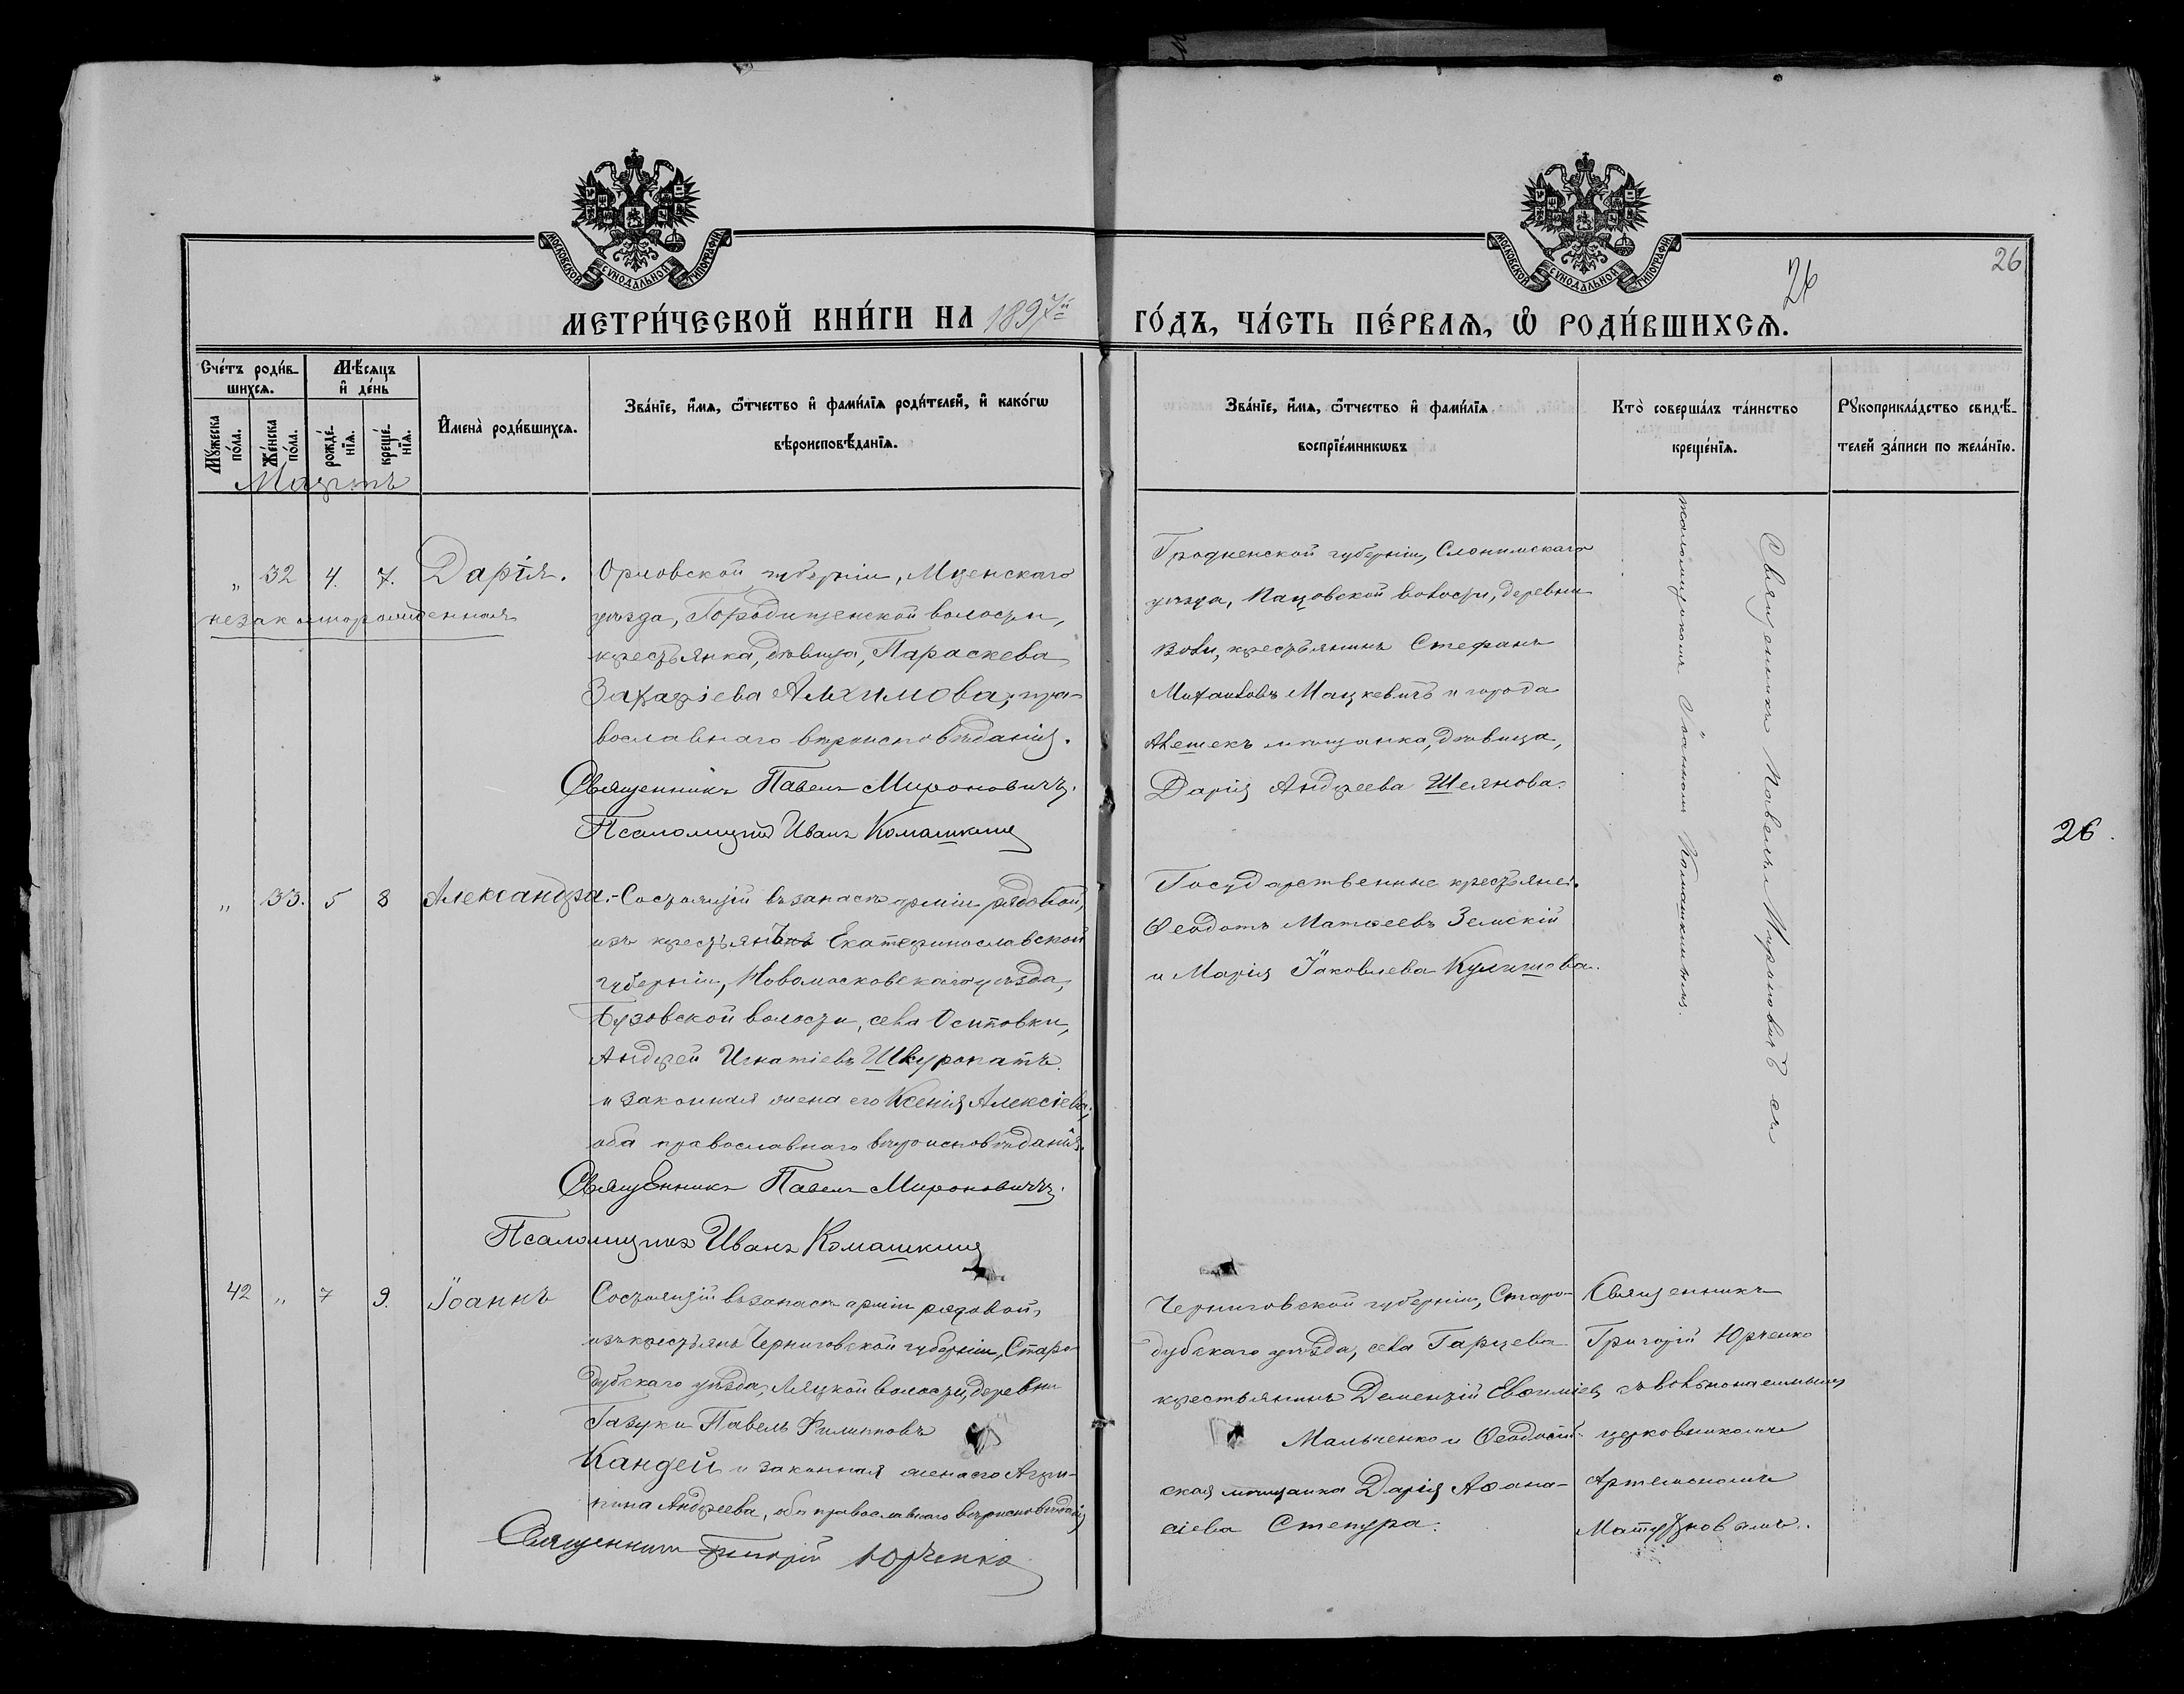 МОСКОВСКОЙ СѴНОДАЛЬНОЙ ТИПОГРАФІИ
МОСКОВСКОЙ СѴНОДАЛЬНОЙ ТИПОГРАФІИ
26
26
МЕТРИ́ЧЕСКОЙ КНИ́ГИ НА 1897й
ГО́ДЪ, ЧА́СТЬ ПЕ́РВАѦ, Ѡ҆ РОДИ́ВШИХСѦ.
Сче́тъ роди́в-
шихсѧ.
Мꙋжеска по́ла.
Же́нска по́ла.
Мѣ́сѧцъ
и҆ де́нь
рожде́-
нїѧ.
креще́-
нїѧ.
И҆мена̀ роди́вшихсѧ.
Зва́нїе, и҆́мѧ, ѻ҆́тчество и҆ фами́лїѧ роди́телей, и҆ како́гѡ
вѣроисповѣ́данїѧ.
Зва́нїе, и҆́мѧ, ѻ҆́тчество и҆ фами́лїѧ
воспрїе́мникѡвъ
Кто̀ соверша́лъ та́инство
креще́нїѧ.
Рꙋкоприкла́дство свидѣ́-
телей за́писи по жела́нїю.
Мартъ
„ 32 4. 7. Дарія.
незаконнорожденная
Орловской губерніи, Мценскаго
уѣзда, Городищенской волости,
крестьянка, дѣвица, Параскева
Захаріева Алхимова, пра-
вославнаго вѣроисповѣданія.
Священникъ Павелъ Мироновичъ.
Псаломщикъ Иванъ Комашкинъ
Гродненской губерніи, Слонимскаго
уѣзда, Пацовской волости, деревни
Воли, крестьянинъ Стефанъ
Михаиловъ Мацкевичъ и города
Алешекъ мѣщанка, дѣвица,
Дарія Андреева Шелянова.
Священникъ Павелъ Мироновичъ съ
псаломщикомъ Іоанномъ Комашкинымъ.
26.
„ 33. 5 8 Александра.
Состоящій въ запасѣ арміи рядовой,
изъ крестьянъ Екатеринославской
губерніи, Новомосковскаго уѣзда,
Бузовской волости, села Осиповки,
Андрей Игнатіевъ Шкуропатъ
и законная жена его Ксенія Алексіева,
оба православнаго вѣроисповѣданія.
Священникъ Павелъ Мироновичъ.
Псаломщикъ Иванъ Комашкинъ
Государственные крестьяне:
Ѳеодотъ Матѳеевъ Земскій
и Марія Іаковлева Кулишова.
42 „ 7 9. Іоаннъ
Состоящій въ запасѣ арміи рядовой,
изъ крестьянъ Черниговской губерніи, Старо-
дубскаго уѣзда, Ляцкой волости, деревни
Газуки Павелъ Филипповъ
Кандей и законная жена его Агрип-
пина Андреева, оба православнаго вѣроисповѣданія
Священникъ Григорій Юрченко
Черниговской губерніи, Старо-
дубскаго уѣзда, села Гарцева
крестьянинъ Дементій Евѳиміевъ
Мальченко и Ѳеодосій-
ская мѣщанка Дарія Аѳана-
сіева Степура.
Священникъ
Григорій Юрченко
съ вольнонаемнымъ
церковникомъ
Артемономъ